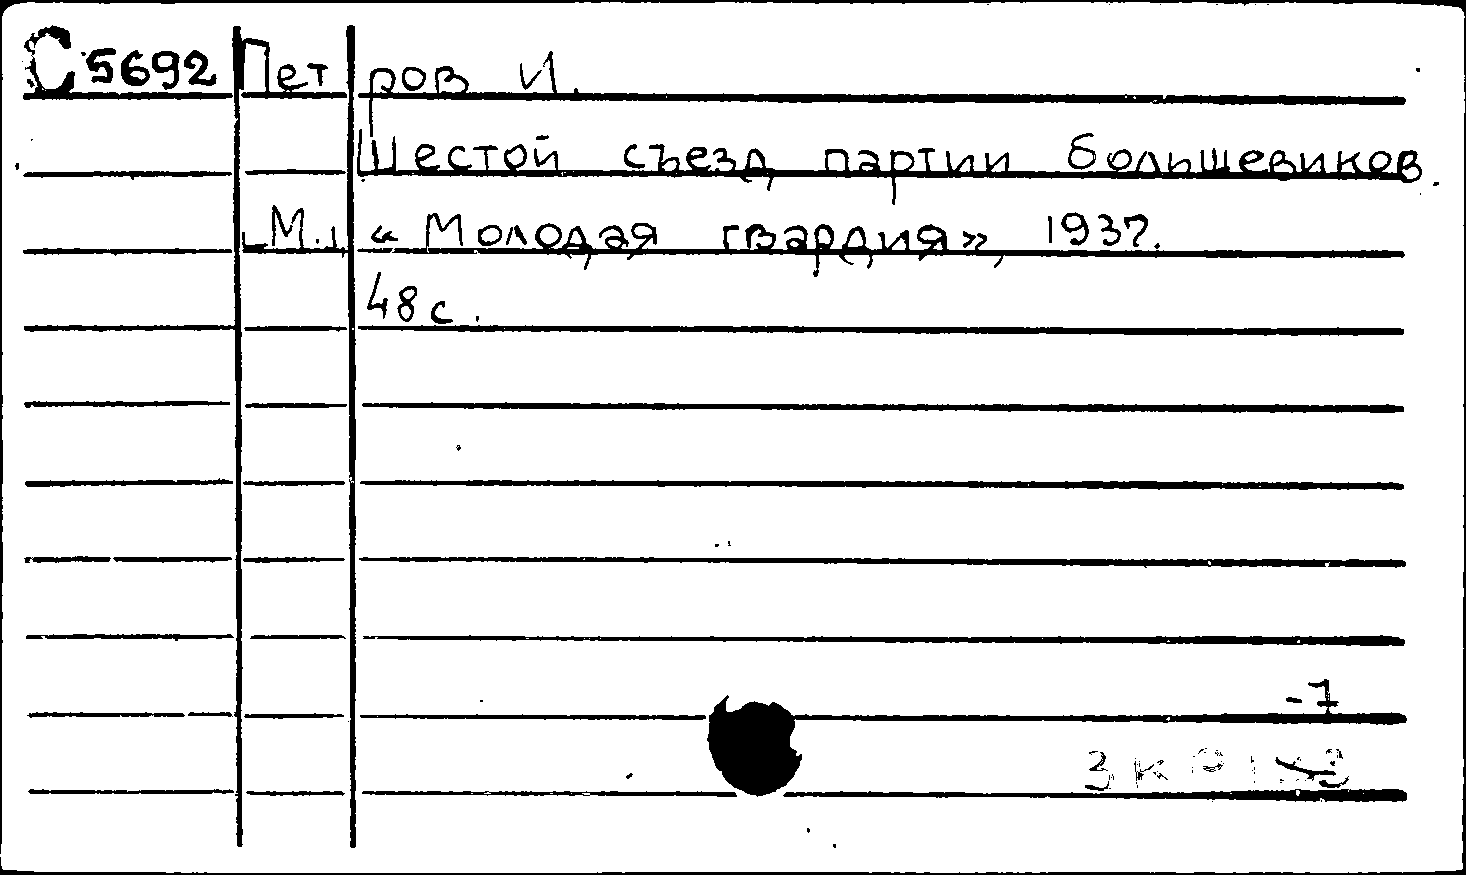 С 5692 Петров И.
Шестой съезд партии большевиков.
М., «Молодая гвардия», 1937.
48 с.
-7